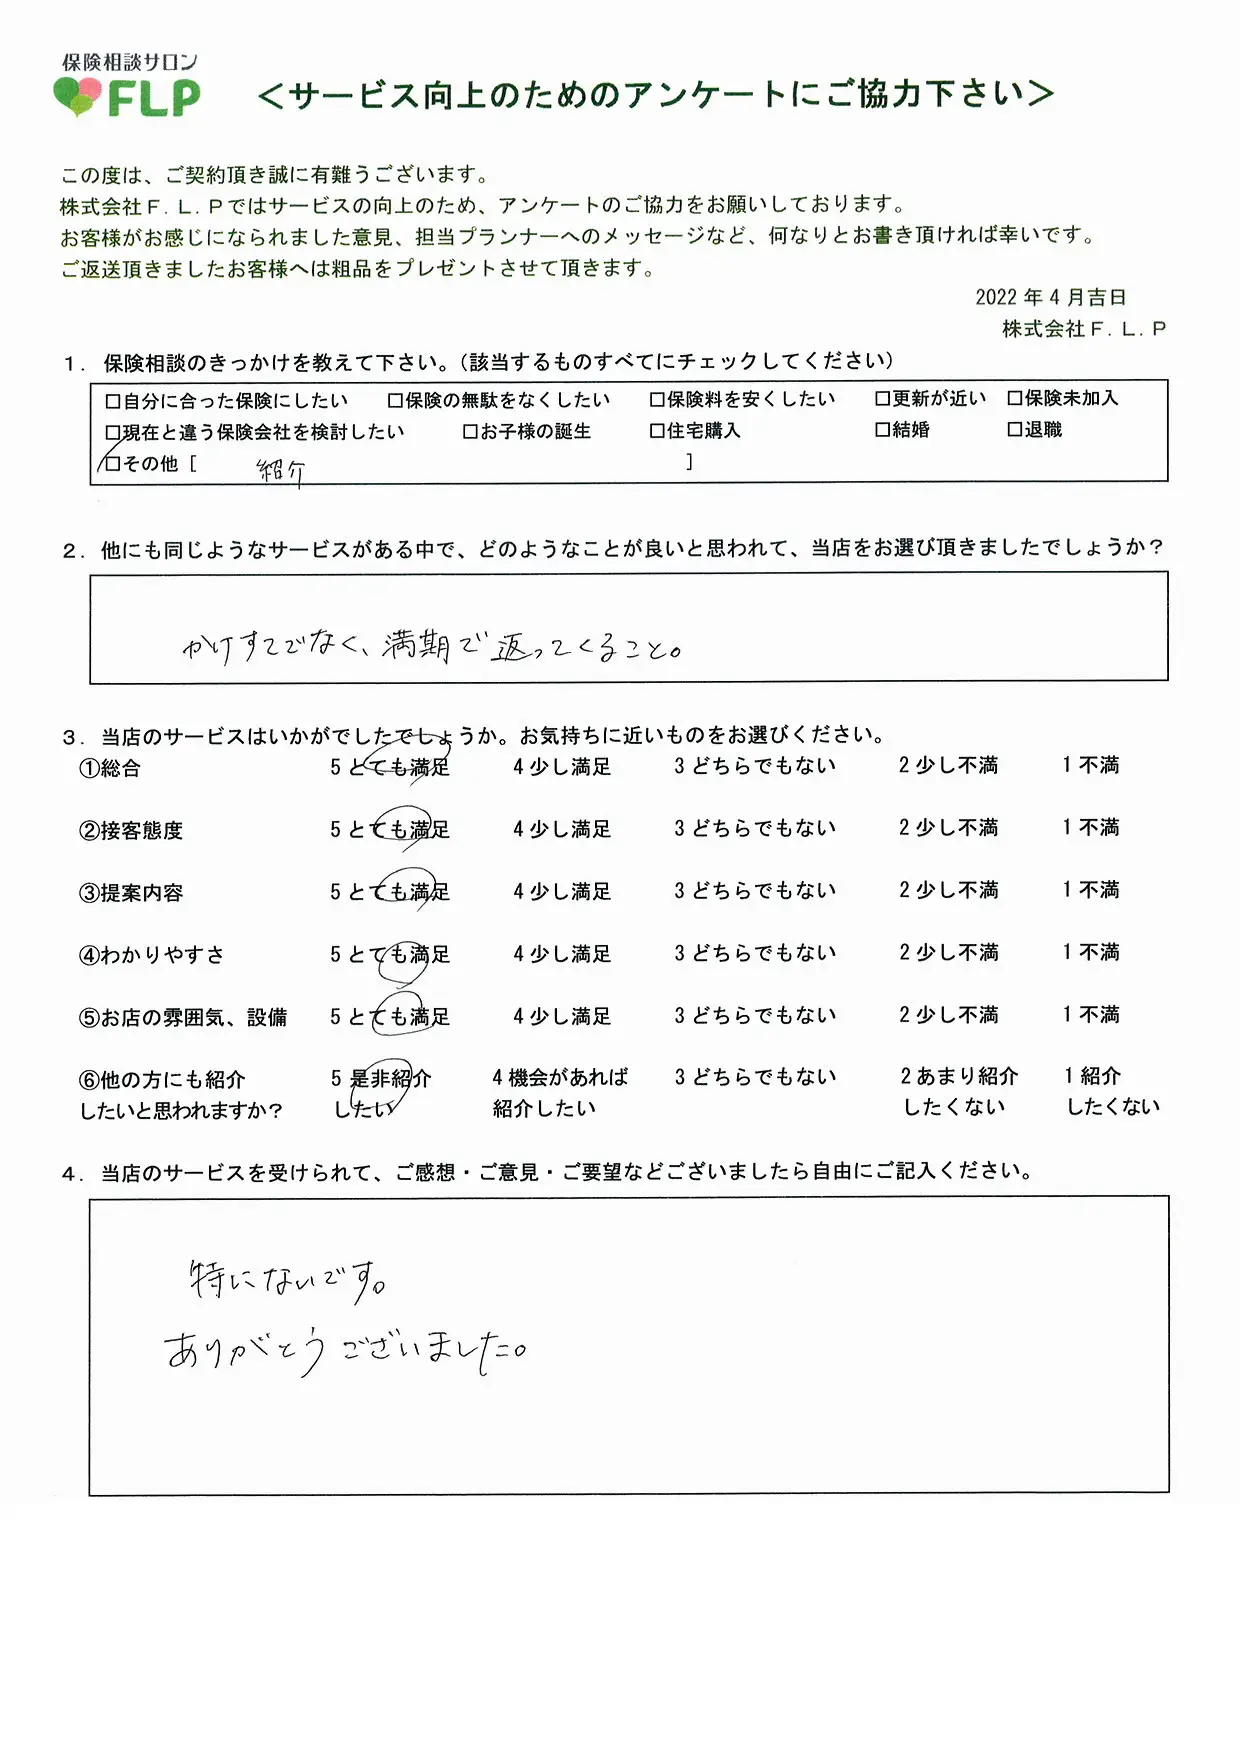 保険相談サロン
FLP
＜サービス向上のためのアンケートにご協力下さい＞
この度は、ご契約頂き誠に有難うございます。
株式会社Ｆ.Ｌ.Ｐではサービスの向上のため、アンケートのご協力をお願いしております。
お客様がお感じになられました意見、担当プランナーへのメッセージなど、何なりとお書き頂ければ幸いです。
ご返送頂きましたお客様へは粗品をプレゼントさせて頂きます。
2022 年 4 月吉日
株式会社Ｆ.Ｌ.Ｐ
１．保険相談のきっかけを教えて下さい。（該当するものすべてにチェックしてください）
□自分に合った保険にしたい □保険の無駄をなくしたい □保険料を安くしたい □更新が近い □保険未加入
□現在と違う保険会社を検討したい □お子様の誕生 □住宅購入 □結婚 □退職
□その他 [ 紹介 ]
２．他にも同じようなサービスがある中で、どのようなことが良いと思われて、当店をお選び頂きましたでしょうか？
かけすてでなく、満期で返ってくること。
３．当店のサービスはいかがでしたでしょうか。お気持ちに近いものをお選びください。
①総合 5 とても満足 4 少し満足 3 どちらでもない 2 少し不満 1 不満
②接客態度 5 とても満足 4 少し満足 3 どちらでもない 2 少し不満 1 不満
③提案内容 5 とても満足 4 少し満足 3 どちらでもない 2 少し不満 1 不満
④わかりやすさ 5 とても満足 4 少し満足 3 どちらでもない 2 少し不満 1 不満
⑤お店の雰囲気、設備 5 とても満足 4 少し満足 3 どちらでもない 2 少し不満 1 不満
⑥他の方にも紹介 5 是非紹介 4 機会があれば 3 どちらでもない 2 あまり紹介 1 紹介
したいと思われますか？ したい 紹介したい したくない したくない
４．当店のサービスを受けられて、ご感想・ご意見・ご要望などございましたら自由にご記入ください。
特にないです。
ありがとうございました。